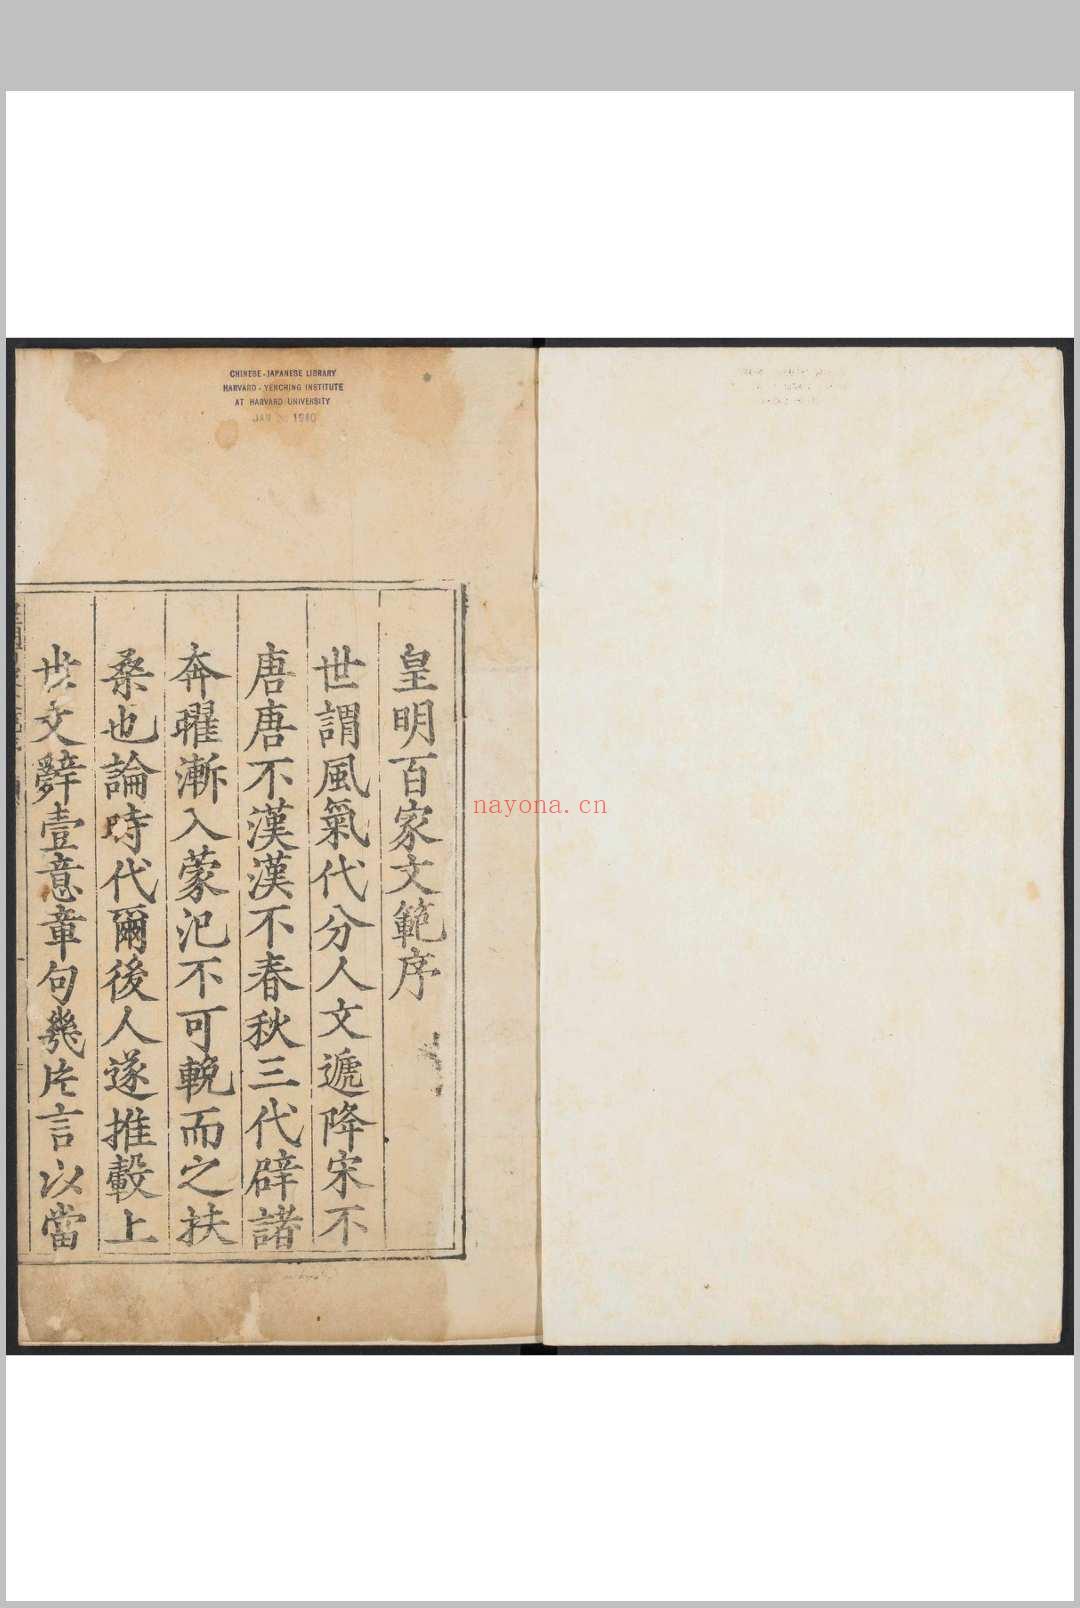 CHINESE-JAPANESE LIBRARY
HARVARD-YENCHING INSTITUTE
AT HARVARD UNIVERSITY
JAN 1940
皇明百家文範序
世謂風氣代分人文遞降宋不
唐唐不漢漢不春秋三代辟諸
奔曜漸入蒙汜不可輓而之扶
桑也論時代爾後人遂推轂上
世文辭壹意章句幾片言以當
nayona.cn